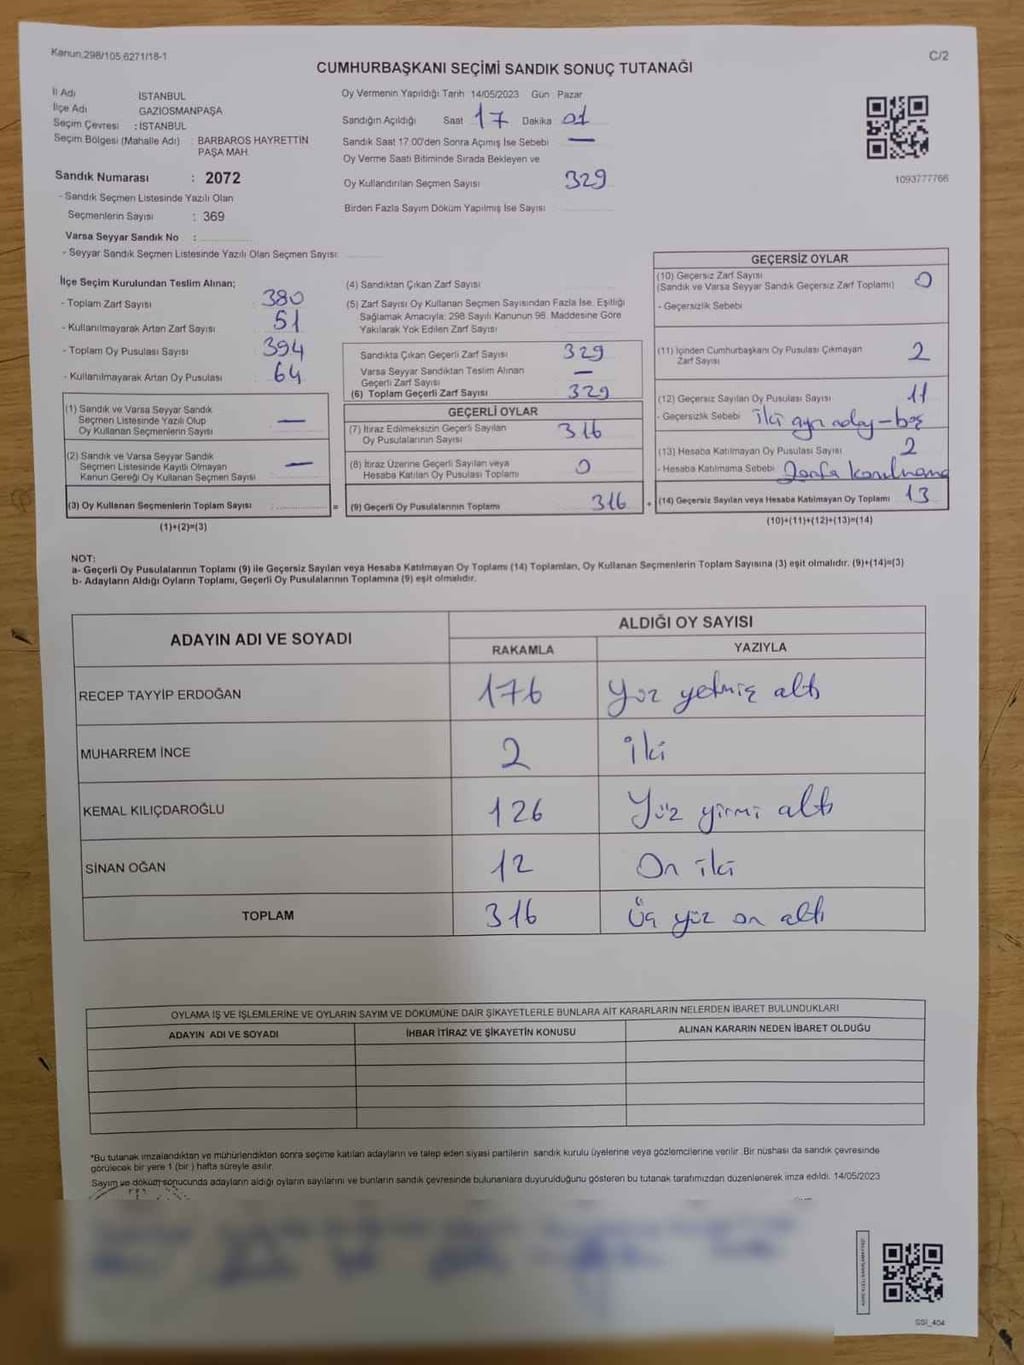 Kanun.298/105.6271/18-1
C/2
CUMHURBAŞKANI SEÇİMİ SANDIK SONUÇ TUTANAĞI
İl Adı İSTANBUL
İlçe Adı GAZİOSMANPAŞA
Seçim Çevresi : İSTANBUL
Seçim Bölgesi (Mahalle Adı) : BARBAROS HAYRETTİN
PAŞA MAH.
Sandık Numarası : 2072
- Sandık Seçmen Listesinde Yazılı Olan
Seçmenlerin Sayısı : 369
Varsa Seyyar Sandık No :
- Seyyar Sandık Seçmen Listesinde Yazılı Olan Seçmen Sayısı:
Oy Vermenin Yapıldığı Tarih 14/05/2023 Gün Pazar
Sandığın Açıldığı Saat 17 Dakika 01
Sandık Saat 17.00'den Sonra Açılmış İse Sebebi —
Oy Verme Saati Bitiminde Sırada Bekleyen ve
Oy Kullandırılan Seçmen Sayısı 329
Birden Fazla Sayım Döküm Yapılmış İse Sayısı
1093777766
İlçe Seçim Kurulundan Teslim Alınan;
- Toplam Zarf Sayısı 380
- Kullanılmayarak Artan Zarf Sayısı 51
- Toplam Oy Pusulası Sayısı 394
- Kullanılmayarak Artan Oy Pusulası 64
(1) Sandık ve Varsa Seyyar Sandık
Seçmen Listesinde Yazılı Olup
Oy Kullanan Seçmenlerin Sayısı —
(2) Sandık ve Varsa Seyyar Sandık
Seçmen Listesinde Kayıtlı Olmayan
Kanun Gereği Oy Kullanan Seçmen Sayısı —
(3) Oy Kullanan Seçmenlerin Toplam Sayısı =
(1)+(2)=(3)
(4) Sandıktan Çıkan Zarf Sayısı
(5) Zarf Sayısı Oy Kullanan Seçmen Sayısından Fazla İse, Eşitliği
Sağlamak Amacıyla; 298 Sayılı Kanunun 98. Maddesine Göre
Yakılarak Yok Edilen Zarf Sayısı
Sandıkta Çıkan Geçerli Zarf Sayısı 329
Varsa Seyyar Sandıktan Teslim Alınan
Geçerli Zarf Sayısı —
(6) Toplam Geçerli Zarf Sayısı 329
GEÇERLİ OYLAR
(7) İtiraz Edilmeksizin Geçerli Sayılan
Oy Pusulalarının Sayısı 316
(8) İtiraz Üzerine Geçerli Sayılan veya
Hesaba Katılan Oy Pusulası Toplamı 0
(9) Geçerli Oy Pusulalarının Toplamı 316 +
GEÇERSİZ OYLAR
(10) Geçersiz Zarf Sayısı
(Sandık ve Varsa Seyyar Sandık Geçersiz Zarf Toplamı) 0
- Geçersizlik Sebebi
(11) İçinden Cumhurbaşkanı Oy Pusulası Çıkmayan
Zarf Sayısı 2
(12) Geçersiz Sayılan Oy Pusulası Sayısı 11
- Geçersizlik Sebebi iki ayrı aday-boş
(13) Hesaba Katılmayan Oy Pusulası Sayısı 2
- Hesaba Katılmama Sebebi Zarfa konulmama
(14) Geçersiz Sayılan veya Hesaba Katılmayan Oy Toplamı 13
(10)+(11)+(12)+(13)=(14)
NOT:
a- Geçerli Oy Pusulalarının Toplamı (9) ile Geçersiz Sayılan veya Hesaba Katılmayan Oy Toplamı (14) Toplamları, Oy Kullanan Seçmenlerin Toplam Sayısına (3) eşit olmalıdır. (9)+(14)=(3)
b- Adayların Aldığı Oyların Toplamı, Geçerli Oy Pusulalarının Toplamına (9) eşit olmalıdır.
ADAYIN ADI VE SOYADI ALDIĞI OY SAYISI
RAKAMLA YAZIYLA
RECEP TAYYİP ERDOĞAN 176 Yüz yetmiş altı
MUHARREM İNCE 2 iki
KEMAL KILIÇDAROĞLU 126 Yüz yirmi altı
SİNAN OĞAN 12 On iki
TOPLAM 316 Üç yüz on altı
OYLAMA İŞ VE İŞLEMLERİNE VE OYLARIN SAYIM VE DÖKÜMÜNE DAİR ŞİKAYETLERLE BUNLARA AİT KARARLARIN NELERDEN İBARET BULUNDUKLARI
ADAYIN ADI VE SOYADI İHBAR İTİRAZ VE ŞİKAYETİN KONUSU ALINAN KARARIN NEDEN İBARET OLDUĞU
*Bu tutanak imzalandıktan ve mühürlendikten sonra seçime katılan adayların ve talep eden siyasi partilerin sandık kurulu üyelerine veya gözlemcilerine verilir. Bir nüshası da sandık çevresinde
görülecek bir yere 1 (bir) hafta süreyle asılır.
Sayım ve döküm sonucunda adayların aldığı oyların sayılarını ve bunların sandık çevresinde bulunanlara duyurulduğunu gösteren bu tutanak tarafımızdan düzenlenerek imza edildi. 14/05/2023
SSI_404